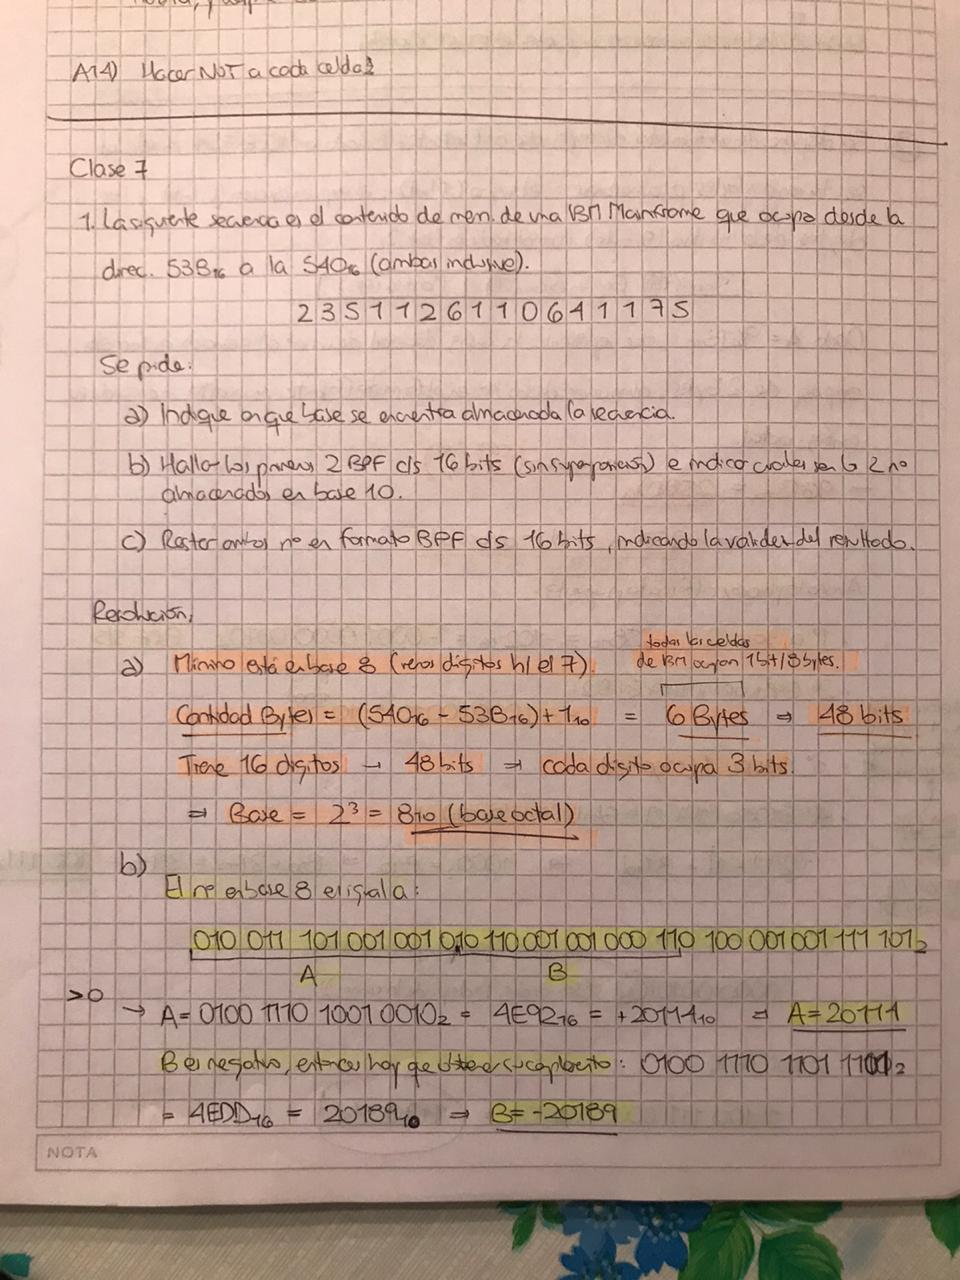 A14) Hacer NOT a cada celda?
Clase 7
1. La siguiente secuencia es el contenido de mem. de una IBM Mainframe que ocupa desde la
direc. 53B₁₆ a la 540₁₆ (ambas inclusive).
2 3 5 1 1 2 6 1 1 0 6 4 1 1 7 5
Se pide:
a) Indique en que base se encuentra almacenada la secuencia.
b) Hallar los primeros 2 BPF c/s 16 bits (sin superponerse) e indicar cuales son los 2 nº
almacenados en base 10.
c) Restar ambos nº en formato BPF c/s 16 bits, indicando la validez del resultado.
Resolución:
todas las celdas
a) Mínimo está en base 8 (veros dígitos h/ el 7). de IBM ocupan 1bit/8bytes.
Cantidad Bytes = (540₁₆ - 53B₁₆) + 1₁₀ = 6 Bytes ⇒ 48 bits
Tiene 16 digitos → 48 bits → cada digito ocupa 3 bits.
⇒ Base = 2³ = 8₁₀ (base octal)
b)
El nº en base 8 es igual a:
010 011 101 001 001 010 110 001 001 000 110 100 001 001 111 101₂
A B
>0 → A = 0100 1110 1001 0010₂ = 4E92₁₆ = +20114₁₀ ⇒ A = 20114
B es negativo, entonces hay que obtener su complemento: 0100 1110 1101 1101₂
= 4EDD₁₆ = 20189₁₀ ⇒ B = -20189
NOTA